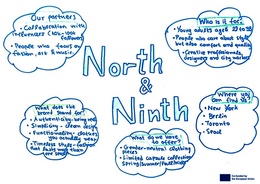 Our partners
• Collaboration with
influencers
• People who focus on
fashion, art & music.
Who is it for?
• Young adults aged
• People who care about style
but also comfort and quality
• Creative professionals,
designers and city
North
&
Ninth
Where you
can find us?
• New York
• Berlin
• Toronto
• Seoul
What does the
brand stand for?
• Authenticity: being real
• Simplicity - clean design
• Functionality - clothes
you actually wear
• Timeless style - fashion
that lasts more than
one season
What do we have
to offer?
• Gender-neutral clothing
pieces
• Limited capsule collections
Spring/Summer/Fall/Winter
Co-funded by
the European Union